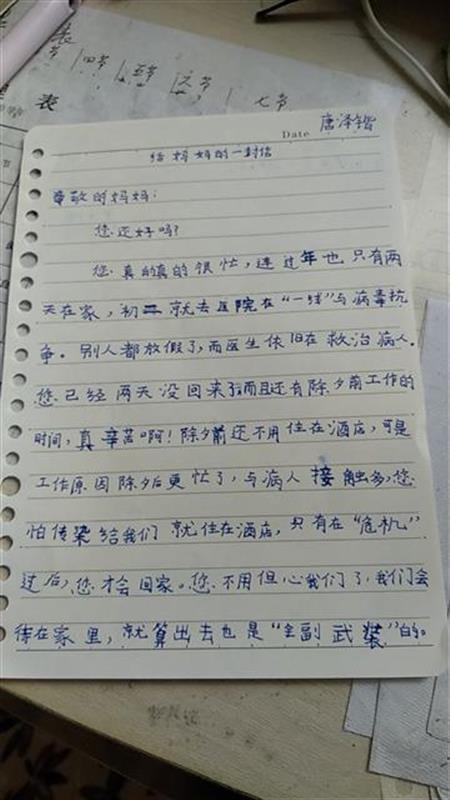 表
节 四节 五节 六节 七节
表
Date 唐泽锴
给妈妈的一封信
尊敬的妈妈：
您还好吗？
您真的真的很忙，连过年也只有两
天在家，初二就去医院在“一线”与病毒抗
争。别人都放假了，而医生依旧在救治病人。
您已经两天没回来了而且还有除夕前工作的
时间，真辛苦啊！除夕前还不用住在酒店，可是
工作原因除夕后更忙了，与病人接触多，您
怕传染给我们就住在酒店，只有在“危机”
过后，您才会回家。您不用但心我们了，我们会
待在家里，就算出去也是“全副武装”的。